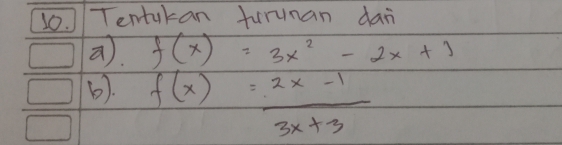 10. Tentukan turunan dari
a). f(x) = 3x² - 2x + 1
b). f(x) = 2x - 1
3x + 3